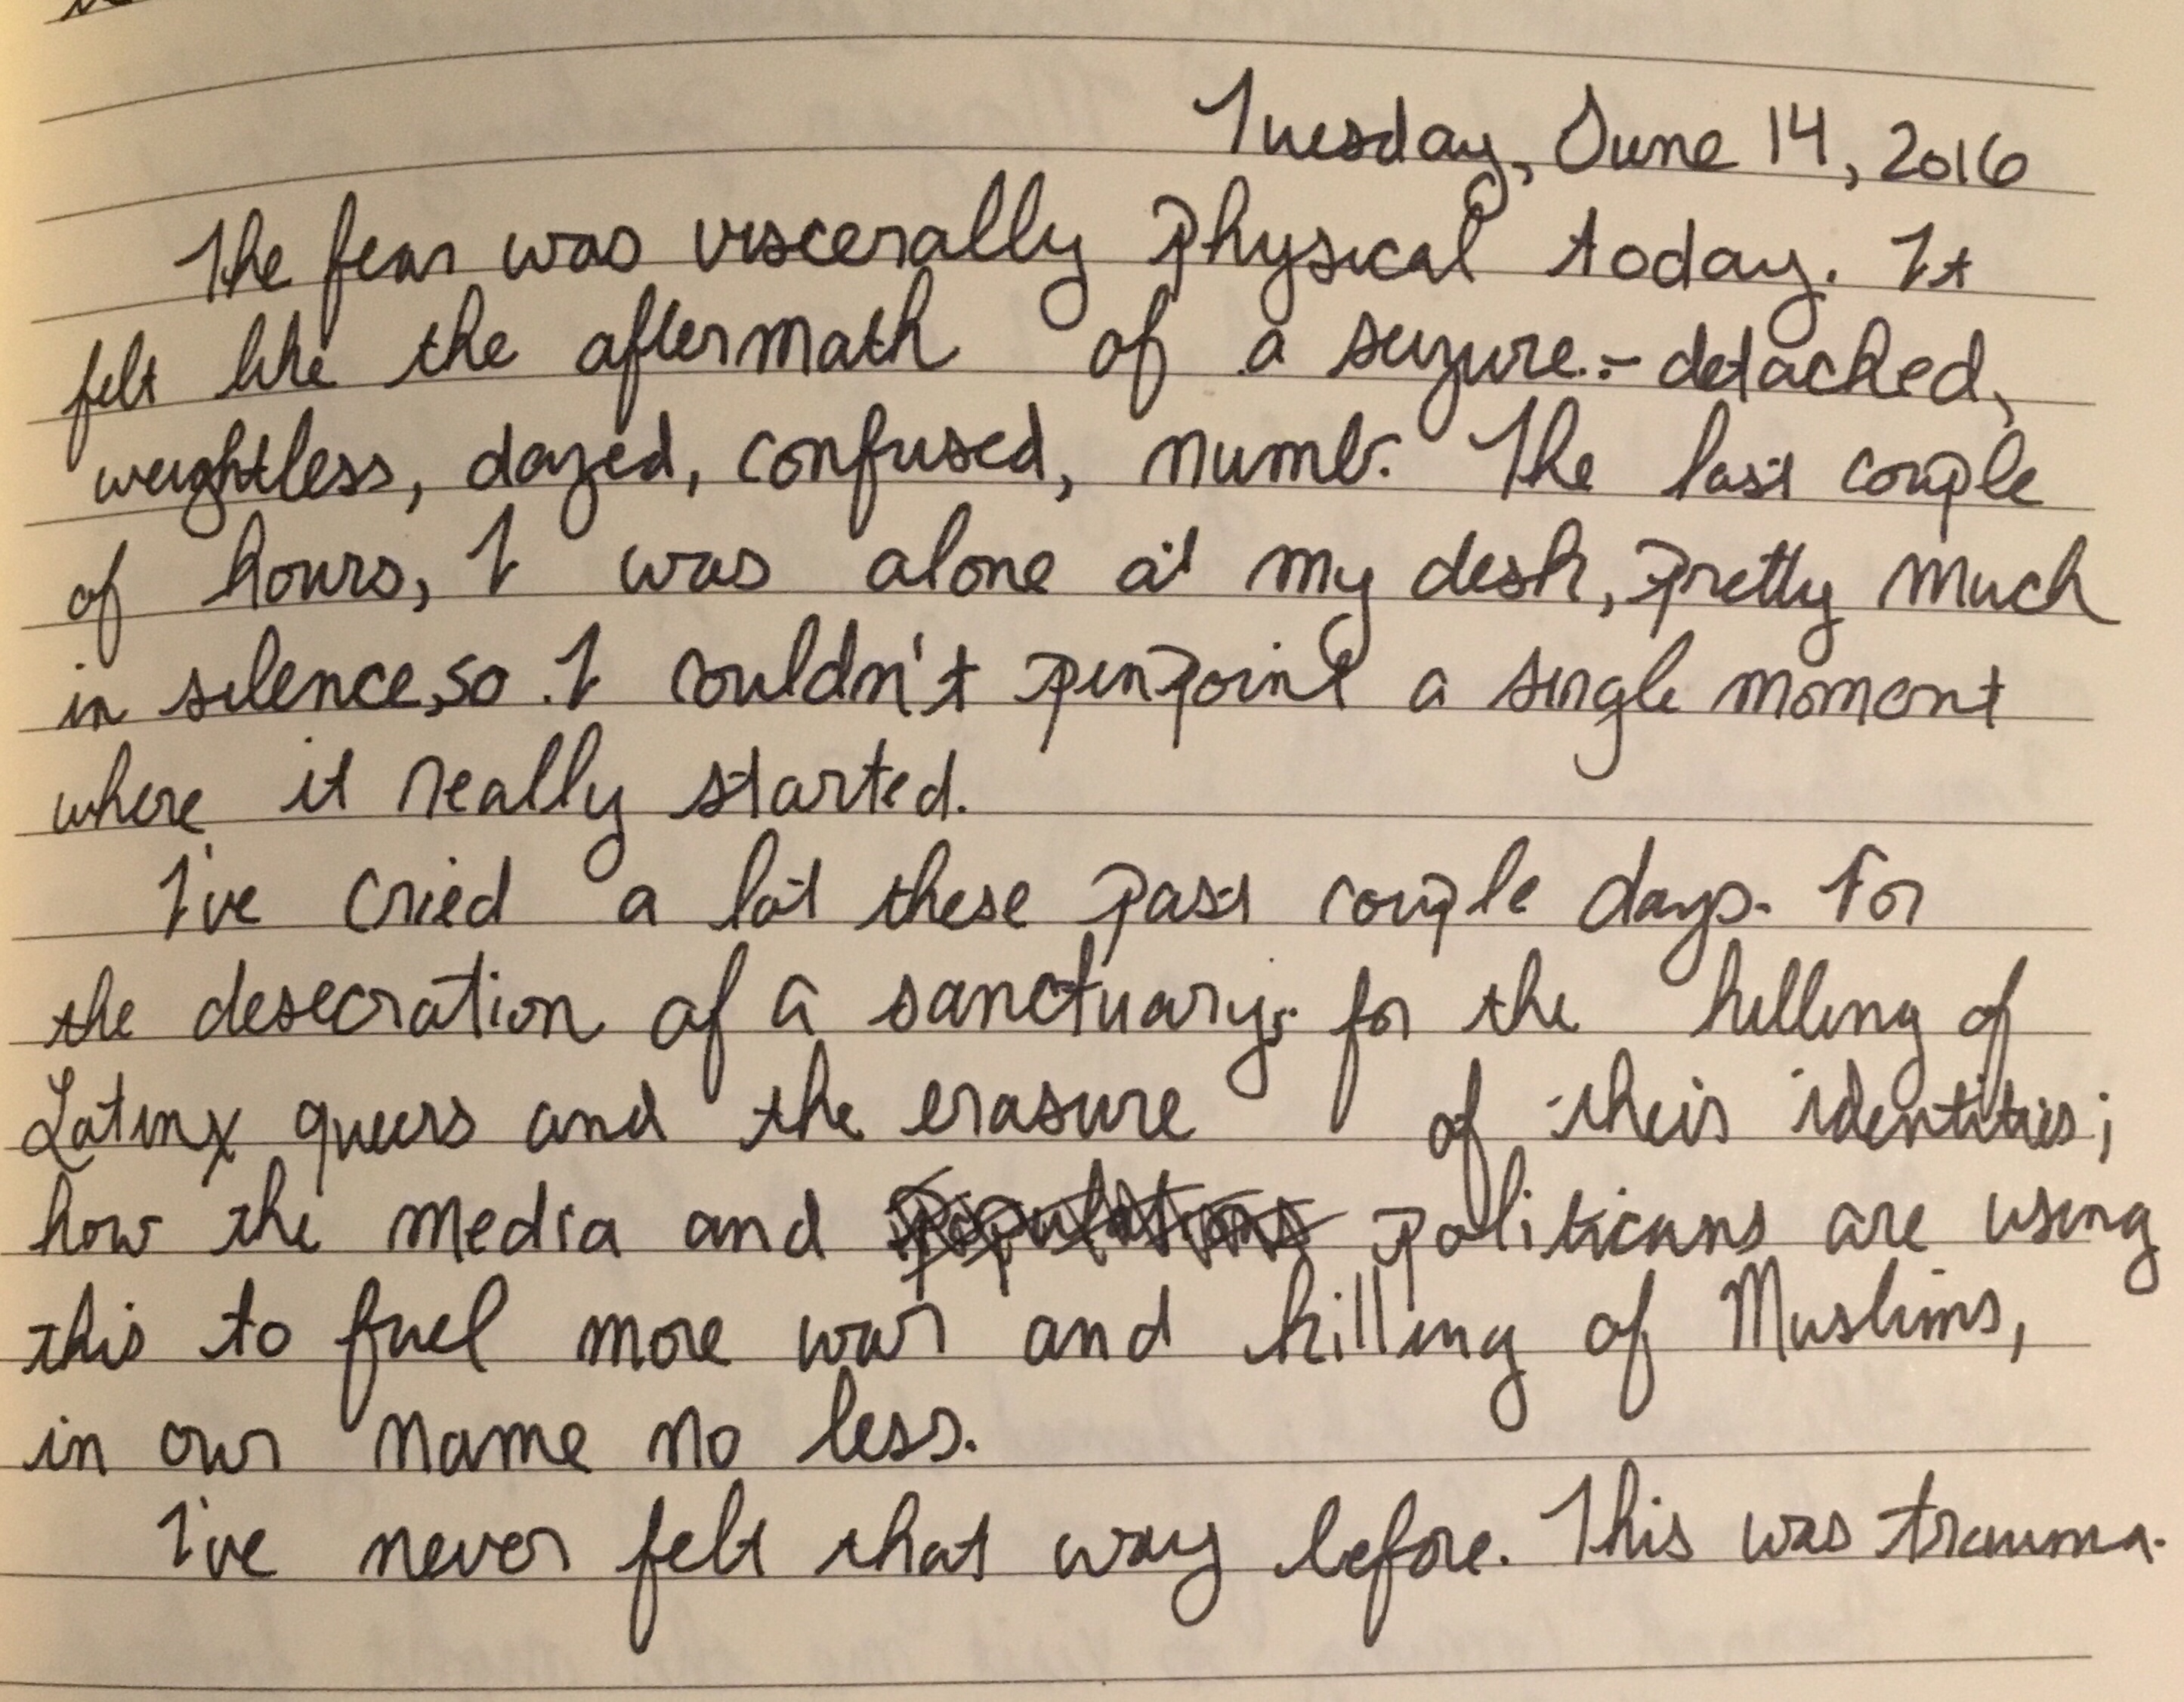 Tuesday, June 14, 2016
The fear was viscerally physical today. It
felt like the aftermath of a seizure - detached,
weightless, dazed, confused, numb. The last couple
of hours, I was alone at my desk, pretty much
in silence, so I couldn't pinpoint a single moment
where it really started.
I've cried a lot these past couple days. For
the desecration of a sanctuary; for the killing of
Latinx queers and the erasure of their identities;
how the media and politicans are using
this to fuel more war and killing of Muslims,
in our name no less.
I've never felt that way before. This was trauma.